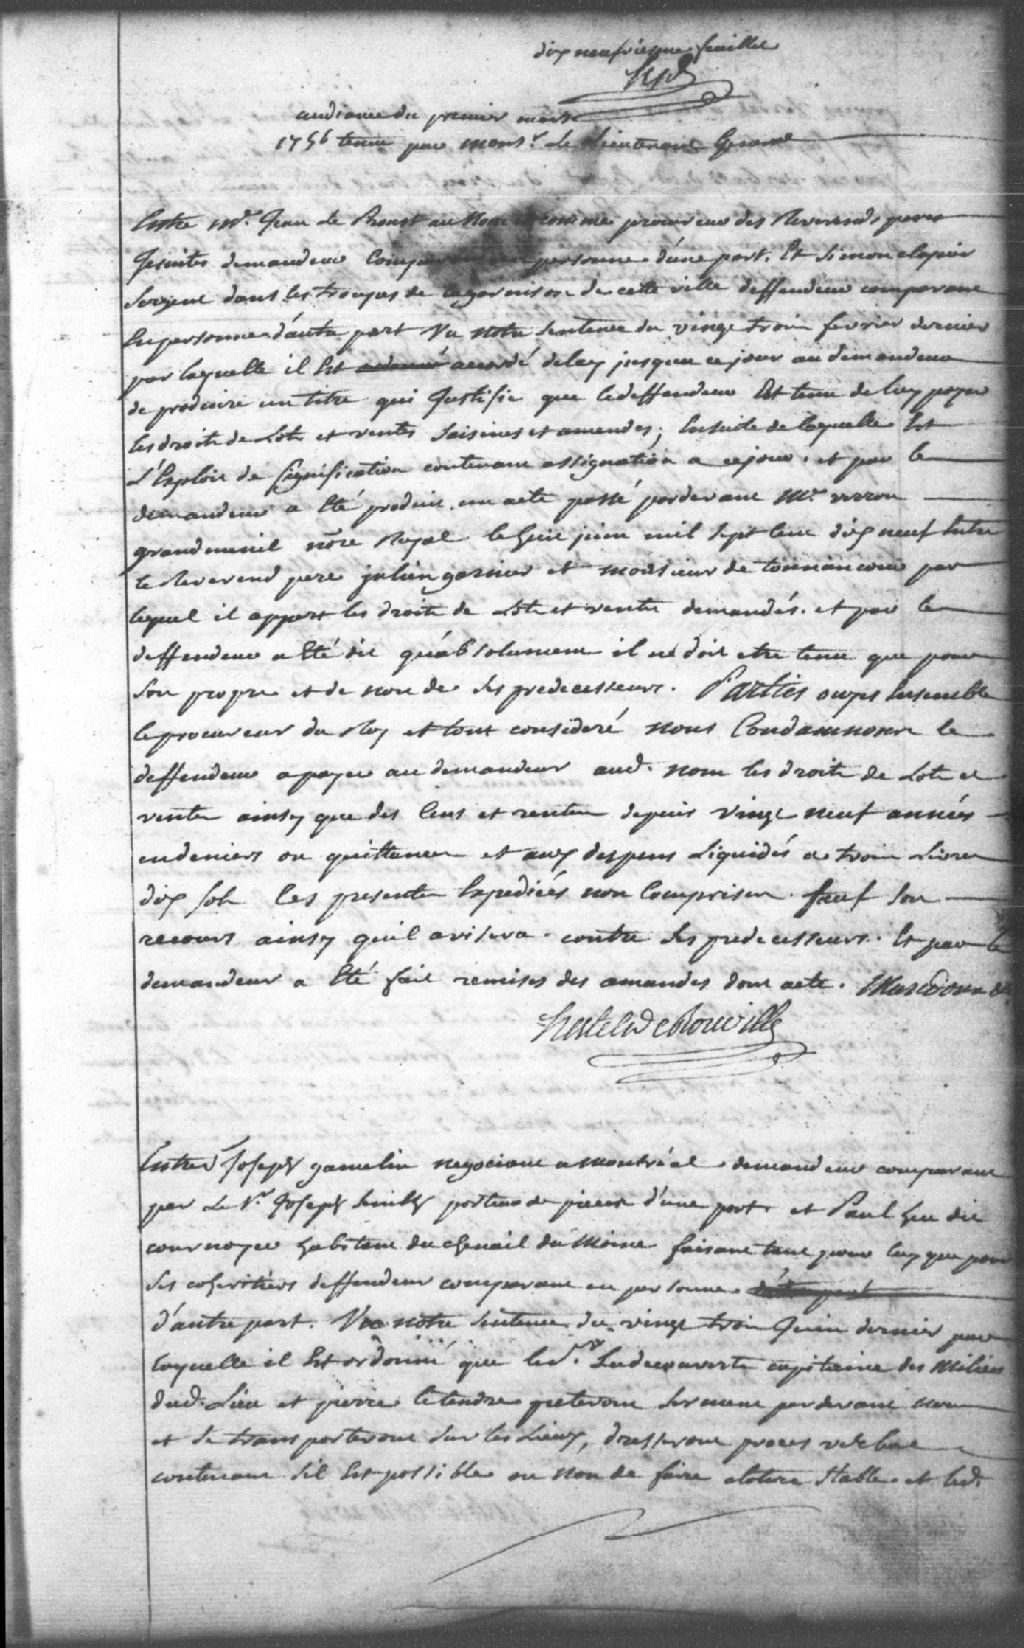 dix neufviesme feuillet
audiance du premier mars
1756 tenue par Mons.r Le Lieutenant General
Entre M.e Jean Le Proust au Nom et comme procureur des Reverends peres
Jesuites demandeur Comparant en personne d'une part. Et Simon clapier
Sergent dans les troupes de la garnison de cette ville deffendeur comparant
En personne d'autre part Vu notre Sentence du vingt trois fevrier dernier
par laquelle il Est accordé delay jusqu'a ce jour au demandeur
de produire un titre qui Justifie que le deffendeur Est tenu de luy payer
les droits de Lots et ventes Saisines et amendes; Ensuite de laquelle Est
L'Exploit de Signification contenant assignation a ce jour. et par le
demandeur a Eté produit un acte passé pardevant M.e verron
grandmenil nōre Royal le huit juin mil Sept Cent dix neuf Entre
le Reverend pere julien garnier et monsieur de tonnancour par
lequel il appert les droits de Lots et ventes demandés. et par le
deffendeur a Eté dit qu'absolument il ne doit etre tenu que pour
Son propre et de non de Ses predecesseurs. Parties ouyes Ensemble
le procureur du Roy et tout consideré nous Condamnons le
deffendeur a payer au demandeur aud. nom les droits de Lots et
ventes ainsy que des Cens et rentes depuis vingt neuf années
en deniers ou quittances et aux despens Liquidés a trois Livres
dix sols Ces presentes Expediées non Comprises. sauf Son
recours ainsy qu'il avisera. contre Ses predecesseurs. Et par le
demandeur a Eté fait remises des amandes dont acte. Mandons &
Hertel de Rouville
Entre Joseph gamelin negociant a Montréal demandeur comparant
par Le S.r Joseph porteur de pieces d'une part et Paul hu dit
cournoyer habitant du chenail du Moine faisant tant pour luy que pour
Ses coheritiers deffendeur comparant en personne
d'autre part. Vu notre Sentence du vingt trois Juin dernier par
laquelle il Est ordonné que le S.r Ladecouverte capitaine des Milices
dud. Lieu et pierre letendre preteront Serment pardevant nous
et Se transporteront Sur les Lieux, dresseront proces verbal
contenant S'il Est possible ou Non de faire cloture Stable. et led.